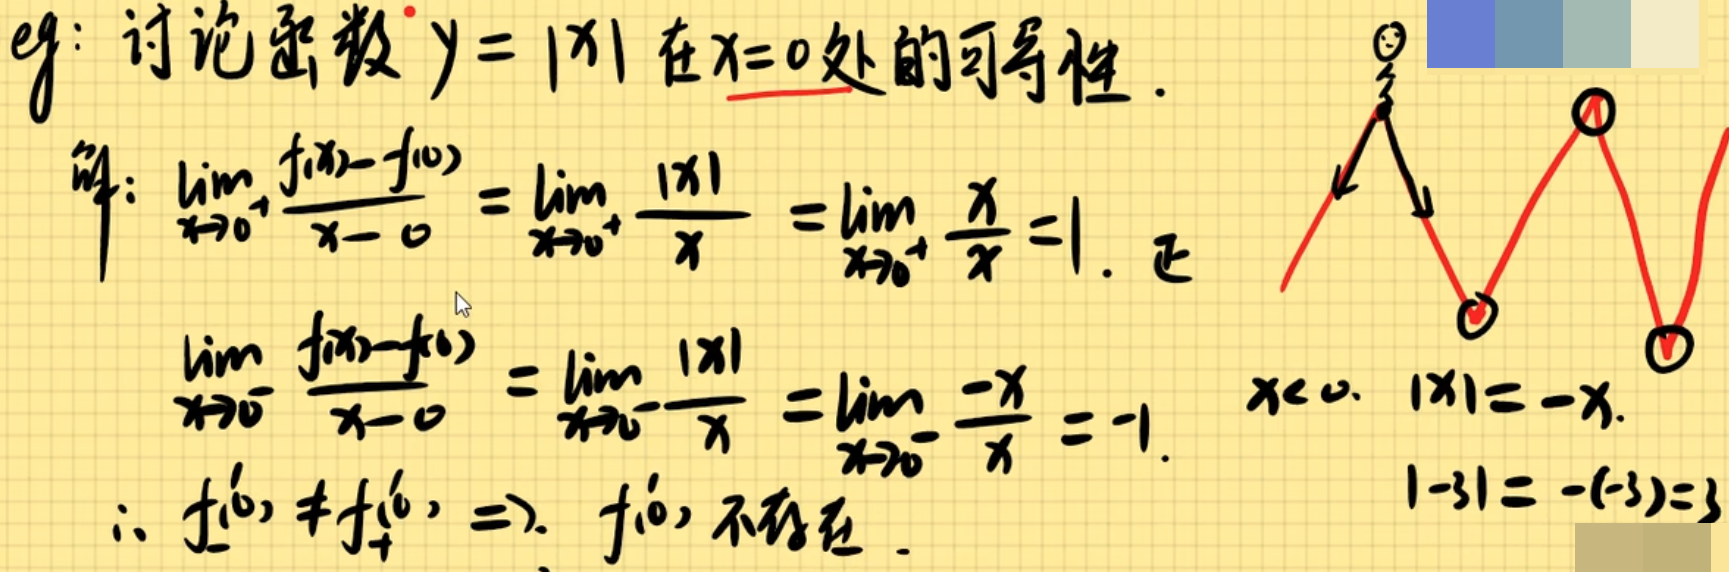 eg: 讨论函数 y = |x| 在 x=0 处的可导性.
解: lim x→0⁺ (f(x)-f(0))/(x-0) = lim x→0⁺ |x|/x = lim x→0⁺ x/x = 1. 正
lim x→0⁻ (f(x)-f(0))/(x-0) = lim x→0⁻ |x|/x = lim x→0⁻ -x/x = -1.
x<0. |x| = -x.
|-3| = -(-3)=3
∴ f₋'(0) ≠ f₊'(0) ⇒ f'(0) 不存在.